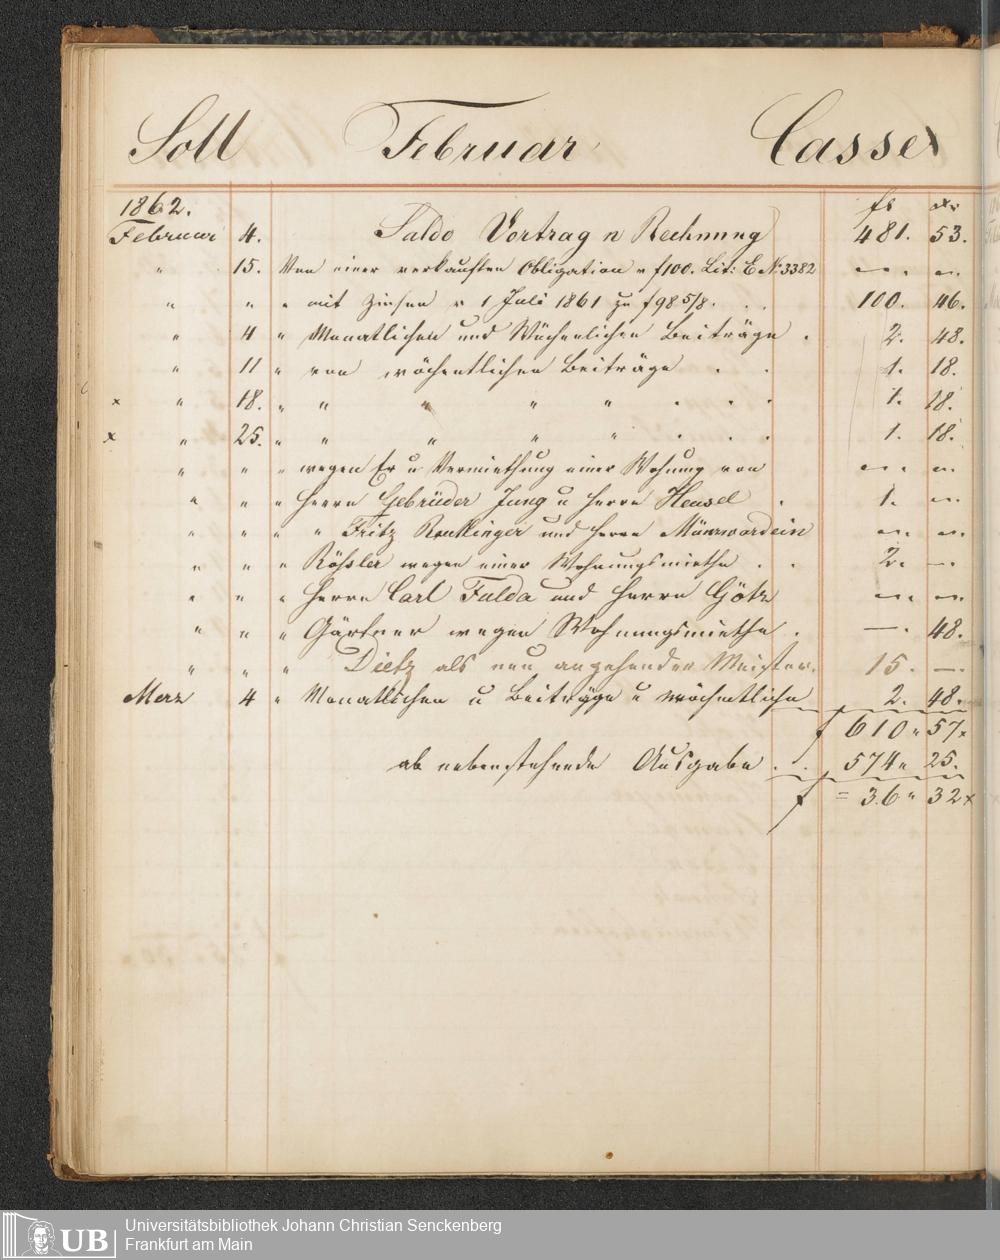 Soll Februar Casse
1862. fl xr
Februar 4. Saldo Vortrag n Rechnung 481. 53.
" 15. Von einer verkauften Obligation v f100. Lit: E No 3382 —. —.
" " " mit Zinsen v 1 Juli 1861 zu f98 5/8. . . 100. 46.
" 4 " Monatlichen und Wöchenlichen Beiträge . 2. 48.
" 11 " von wöchentlichen Beiträge . . 1. 18.
x " 18. " " " " " . . . 1. 18.
x " 25. " " " " " . . . 1. 18.
" " " wegen Er u Vermiethung einer Wohnung von —. —.
" " " Herrn Gebrüder Jung u Herrn Hensel . 1. —.
" " " " Fritz Reutlinger und Herrn Münzwardein —. —.
" " " Rößler wegen einer Wohnungsmiethe . . 2. —.
" " " Herrn Carl Fulda und Herrn Götz —. —.
" " " Gärtner wegen Wohnungsmiethe . —. 48.
" " " Dietz als neu angehender Meister. 15. —.
Merz 4 " Monatlichen u Beiträge u wöchentliche 2. 48.
f 610 " 57 x
ab nebenstehende Ausgabe . . 574 " 25.
f = 36 " 32 x
UB Universitätsbibliothek Johann Christian Senckenberg
Frankfurt am Main